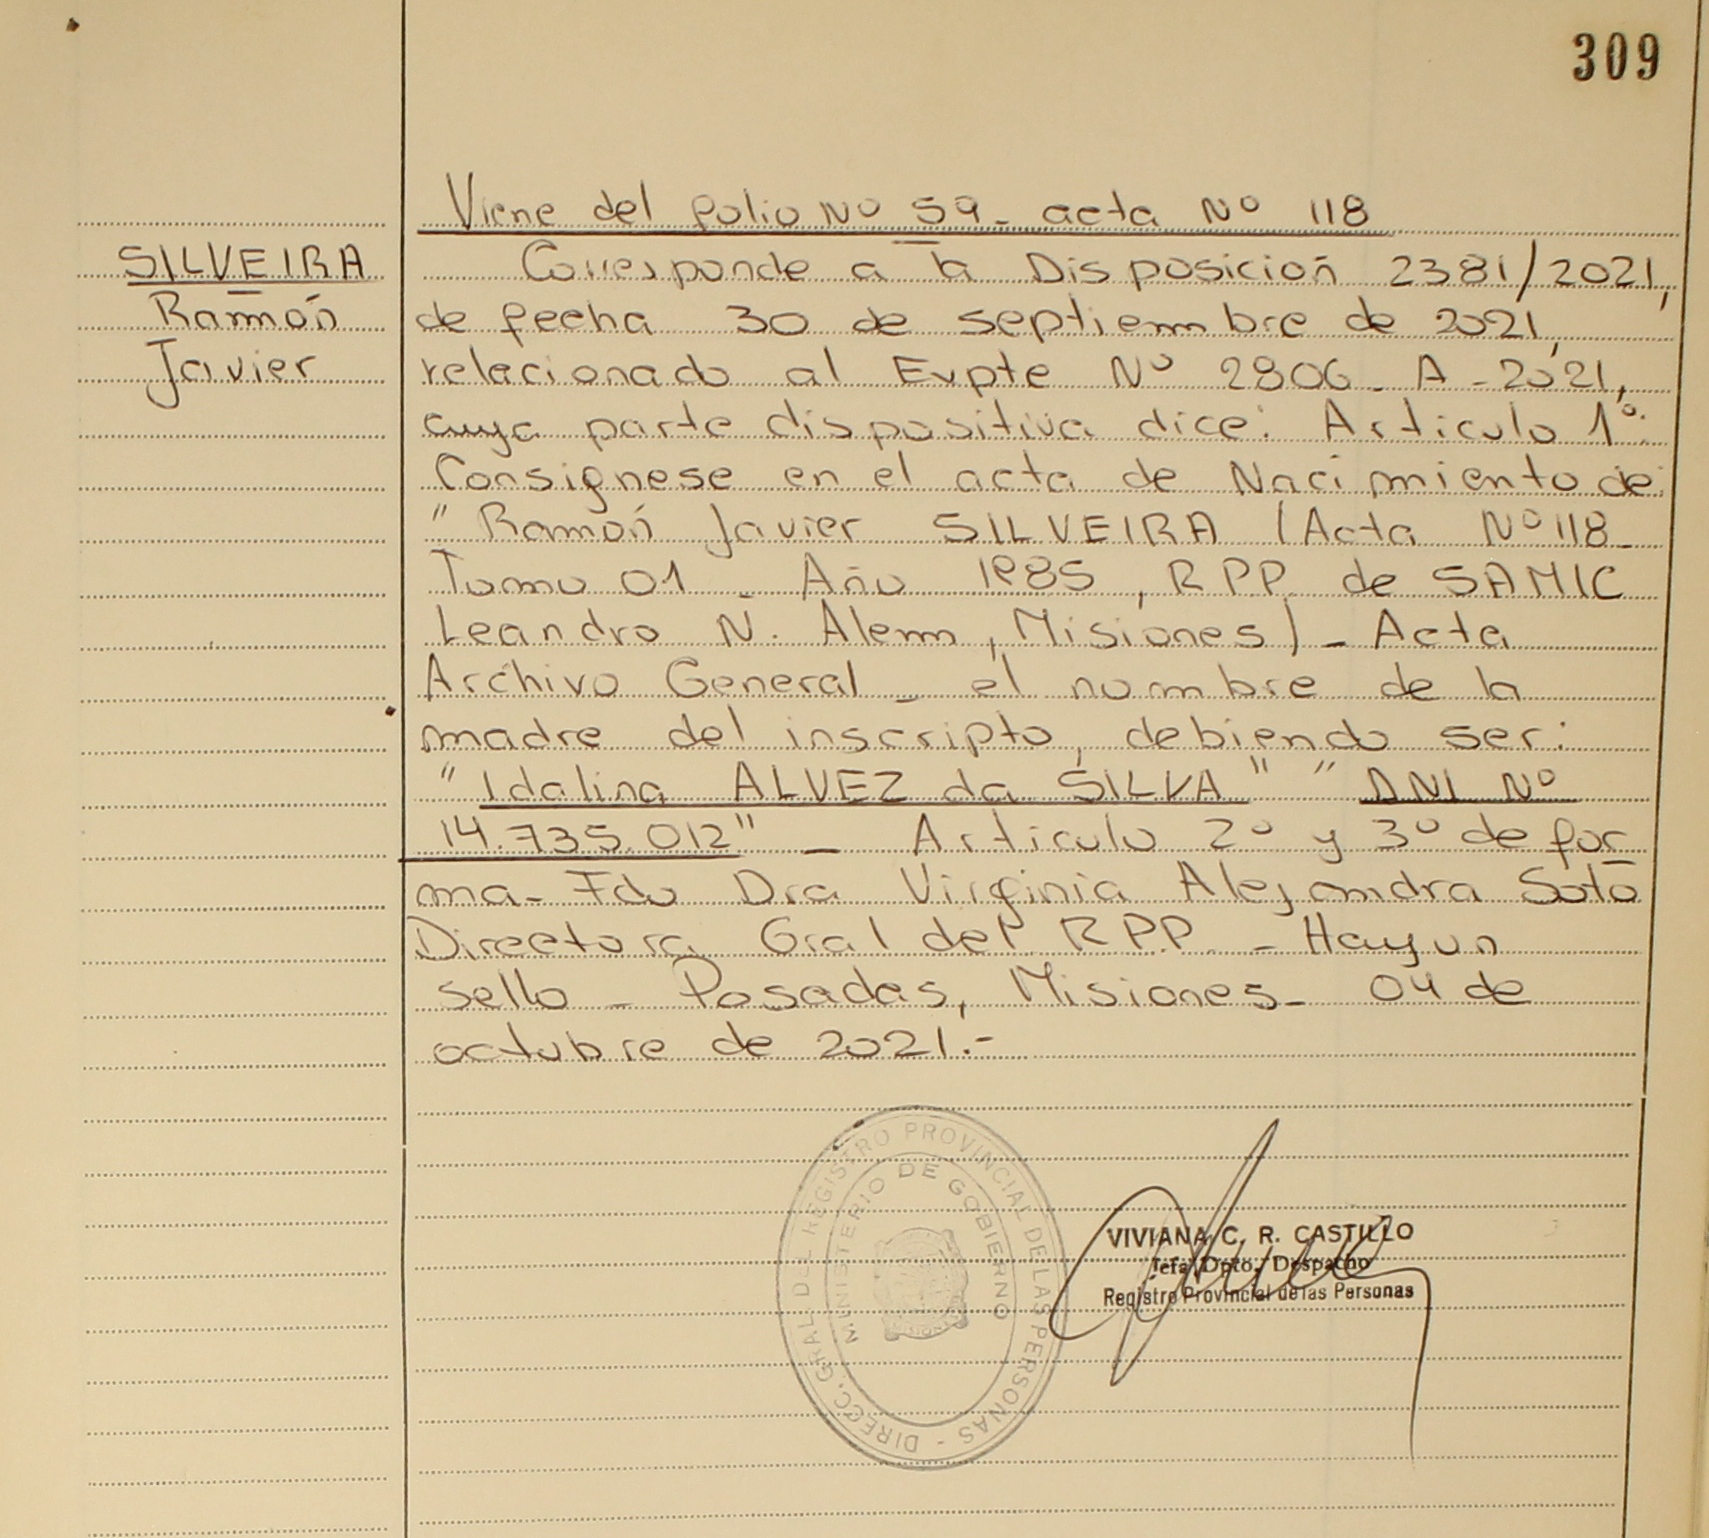 309
SILVEIRA
Ramón
Javier
Viene del folio Nº 59 - acta Nº 118
Corresponde a la Disposición 2381/2021,
de fecha 30 de septiembre de 2021,
relacionado al Expte Nº 2806 - A - 2021,
cuya parte dispositiva dice: Articulo 1º:
Consignese en el acta de Nacimiento de
" Ramón Javier SILVEIRA (Acta Nº 118 -
Tomo 01 - Año 1985, RPP. de SAMIC
Leandro N. Alem, Misiones) - Acta
Archivo General - el nombre de la
madre del inscripto, debiendo ser:
" Idalina ALVEZ da SILVA " " DNI Nº
14.735.012" - Articulo 2º y 3º de for
ma - Fdo Dra Virginia Alejandra Soto
Directora Gral del R.P.P. - Hay un
sello - Posadas, Misiones - 04 de
octubre de 2021.-
DIRECC. GRAL. DEL REGISTRO PROVINCIAL DE LAS PERSONAS -
MINISTERIO DE GOBIERNO
VIVIANA C. R. CASTILLO
Jefa Dpto. Despacho
Registro Provincial de las Personas